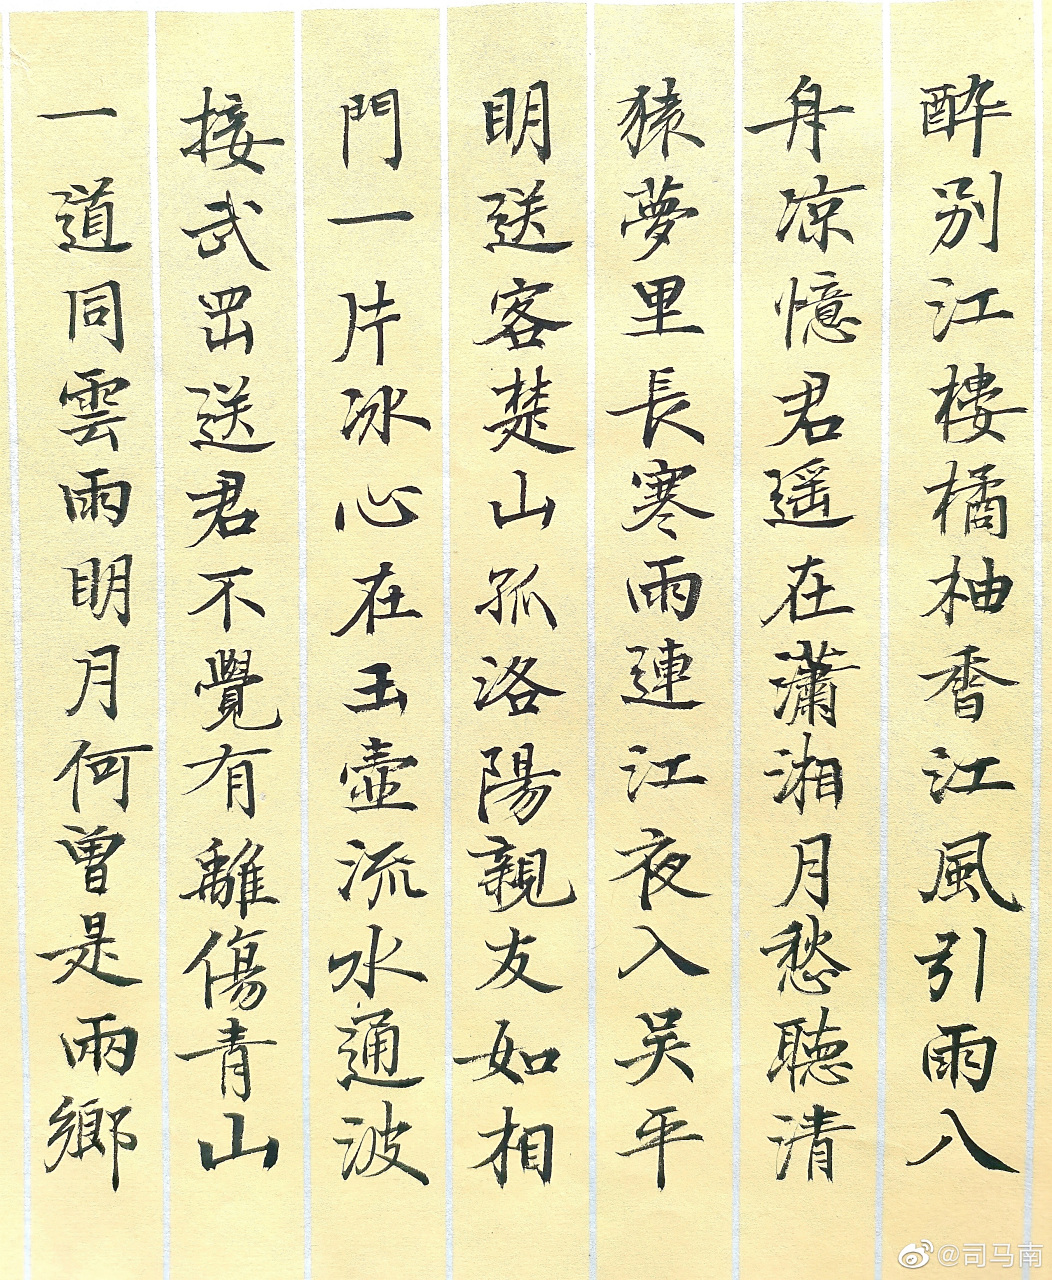 醉別江樓橘柚香江風引雨入
舟凉憶君遥在瀟湘月愁聽清
猿夢里長寒雨連江夜入吴平
明送客楚山孤洛陽親友如相
門一片冰心在玉壺流水通波
接武岡送君不覺有離傷青山
一道同雲雨明月何曾是兩鄉
@司马南